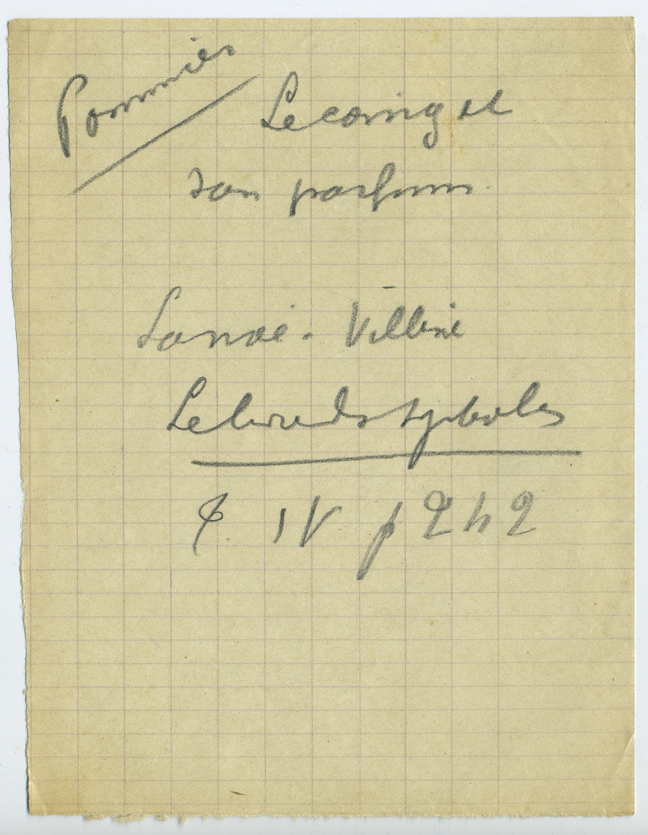 Pommier
Le coing et
son parfum
Lanoë-Villène
Le livre des symboles
t. IV p 242